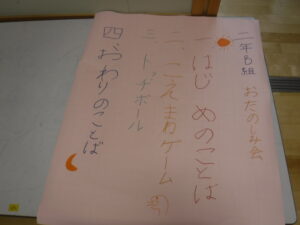 二年B組 おたのしみ会
一、はじめのことば
二、こえまねゲーム
三 ドッチボール
四 おわりのことば